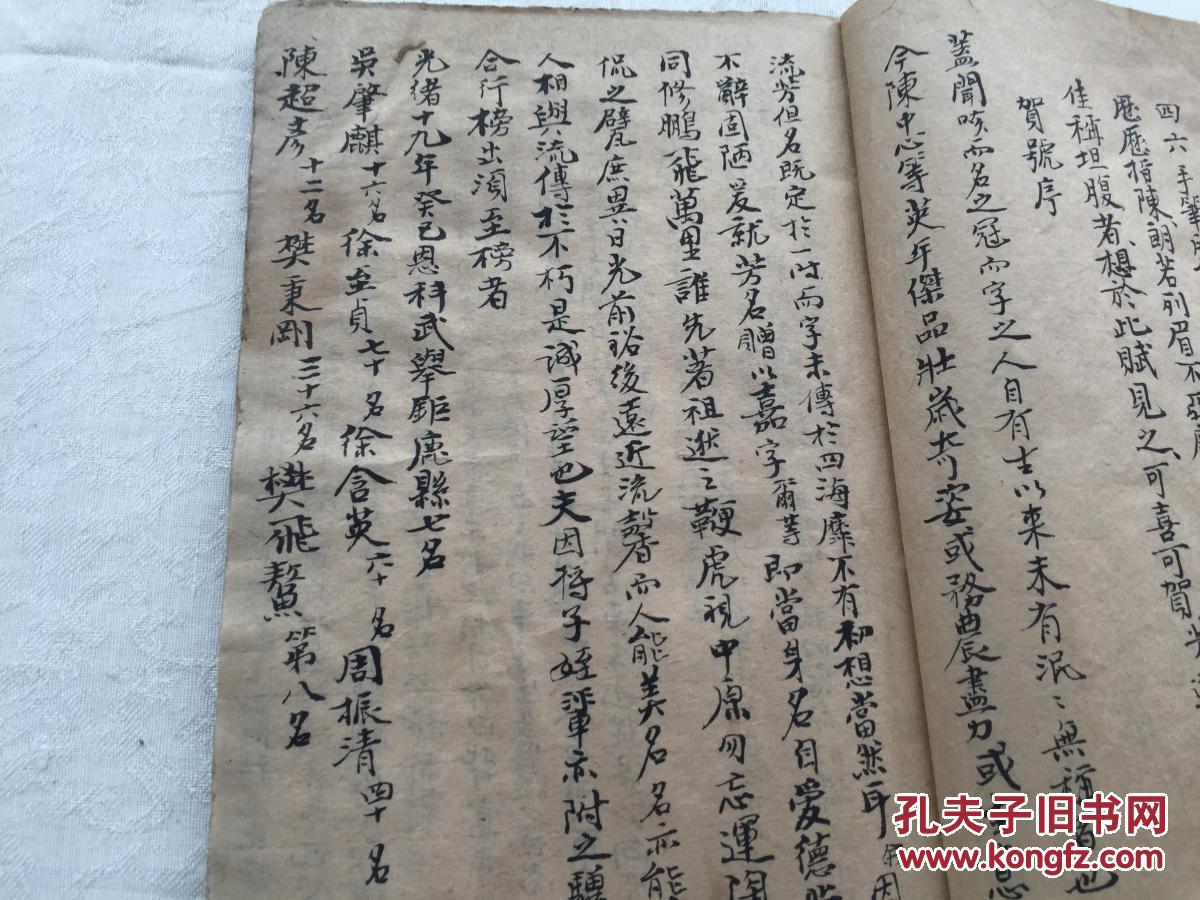 四六手
歷歷將陳朗若列眉不
佳稱坦腹者想於此賦見之可喜可賀
賀號序
蓋聞咳而名之冠而字之人自有生以來未有泯々無稱者也
今陳中心等英年傑品壯歲奇姿或務農盡力或
流芳但名既定於一時而字未傳於四海靡不有初想當然耳余因
不辭固陋爰就芳名贈以嘉字爾等即當身名自愛德
同修鵬飛萬里誰先著祖逖之鞭虎視中原勿忘運陶
侃之甓庶異日光前裕後遠近流馨而人能美名名亦能
人相與流傳於不朽是誠厚望也夫因將子姪輩亦附之驥
合行榜出須至榜者
光緒十九年癸巳恩科武舉鉅鹿縣七名
吳肇麒十六名徐至貞七十名徐含英六十名周振清四十名
陳超彥十二名樊秉剛三十六名樊飛鰲第八名
孔夫子旧书网
www.kongfz.com